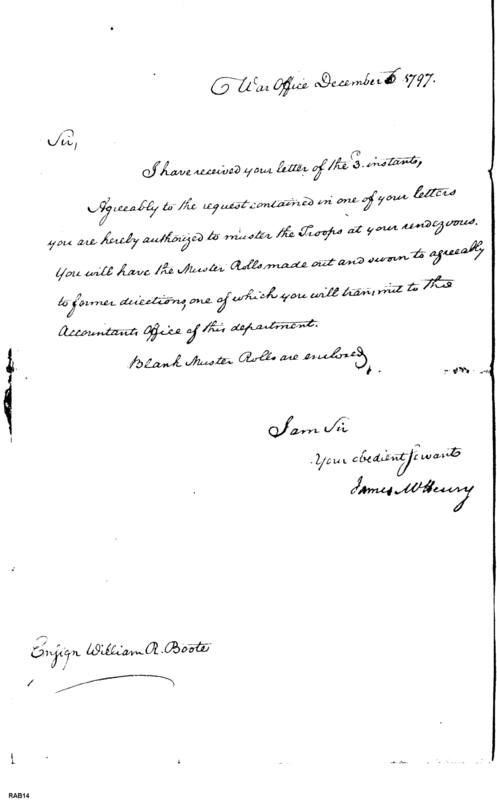 War Office December 6 1797.
Sir,
I have received your letter of the 3. instant,
Agreeably to the request contained in one of your letters
you are hereby authorized to muster the Troops at your rendezvous.
You will have the Muster Rolls made out and sworn to agreeably
to former directions, one of which you will transmit to the
Accountants Office of this department.
Blank Muster Rolls are enclosed,
I am Sir
Your obedient Servant
James McHenry
Ensign William R. Boote
RAB14